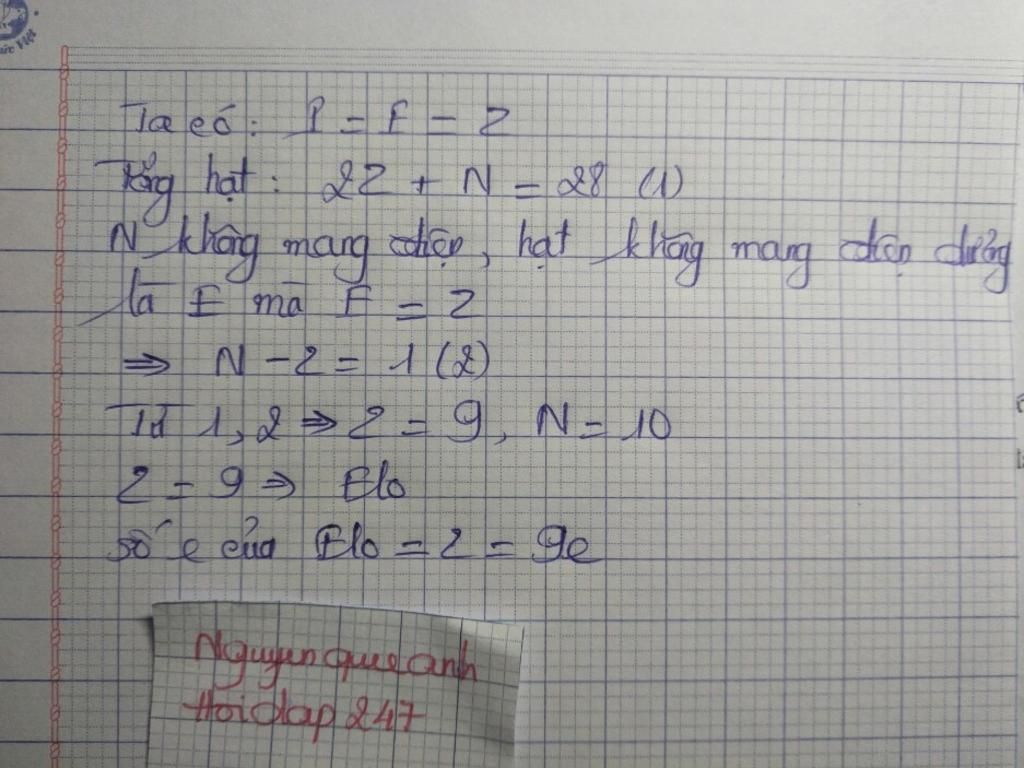 Ta có: P = E = Z
Tổng hạt: 2Z + N = 28 (1)
N không mang điện, hạt không mang điện dương
là E mà E = Z
⇒ N - Z = 1 (2)
Từ 1, 2 ⇒ Z = 9, N = 10
Z = 9 ⇒ Flo
số e của Flo = Z = 9e
Nguyen que anh
Hoidap 247